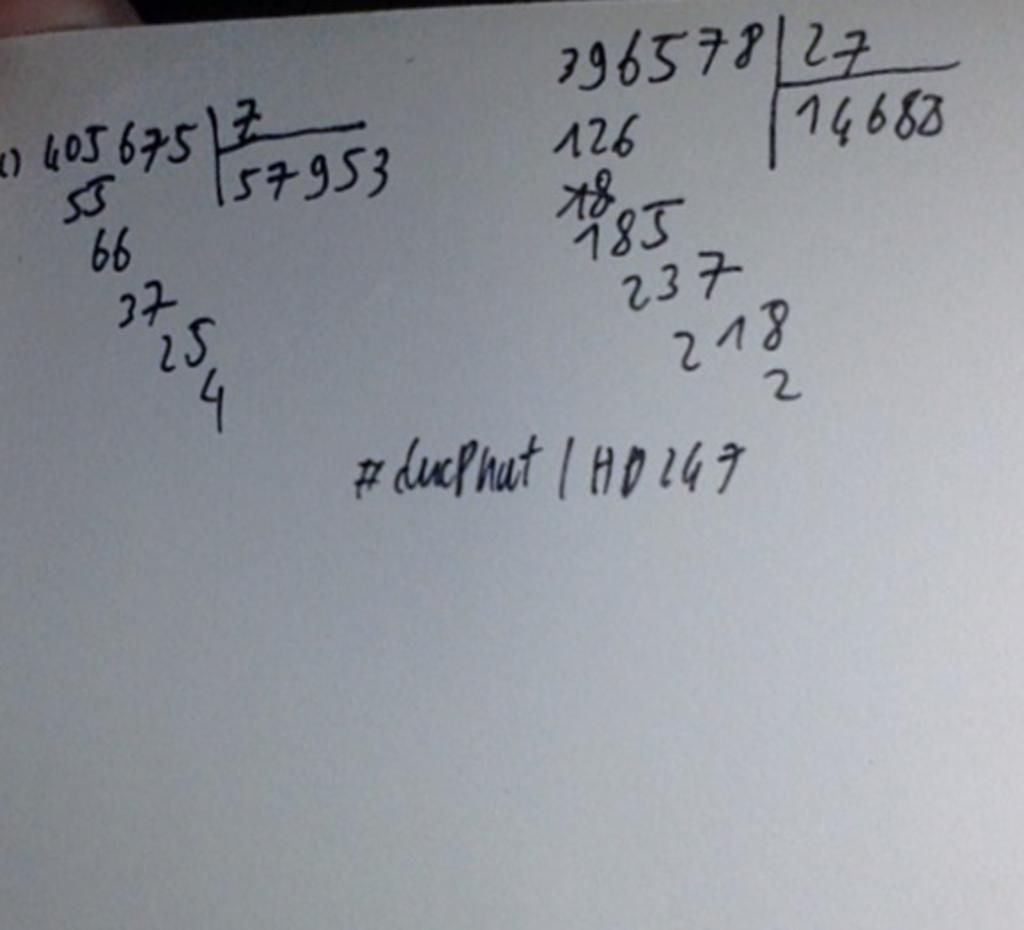 405675 7
57953
55
66
37
25
4
396578 27
14688
126
185
237
218
2
#ducPhat / HD247